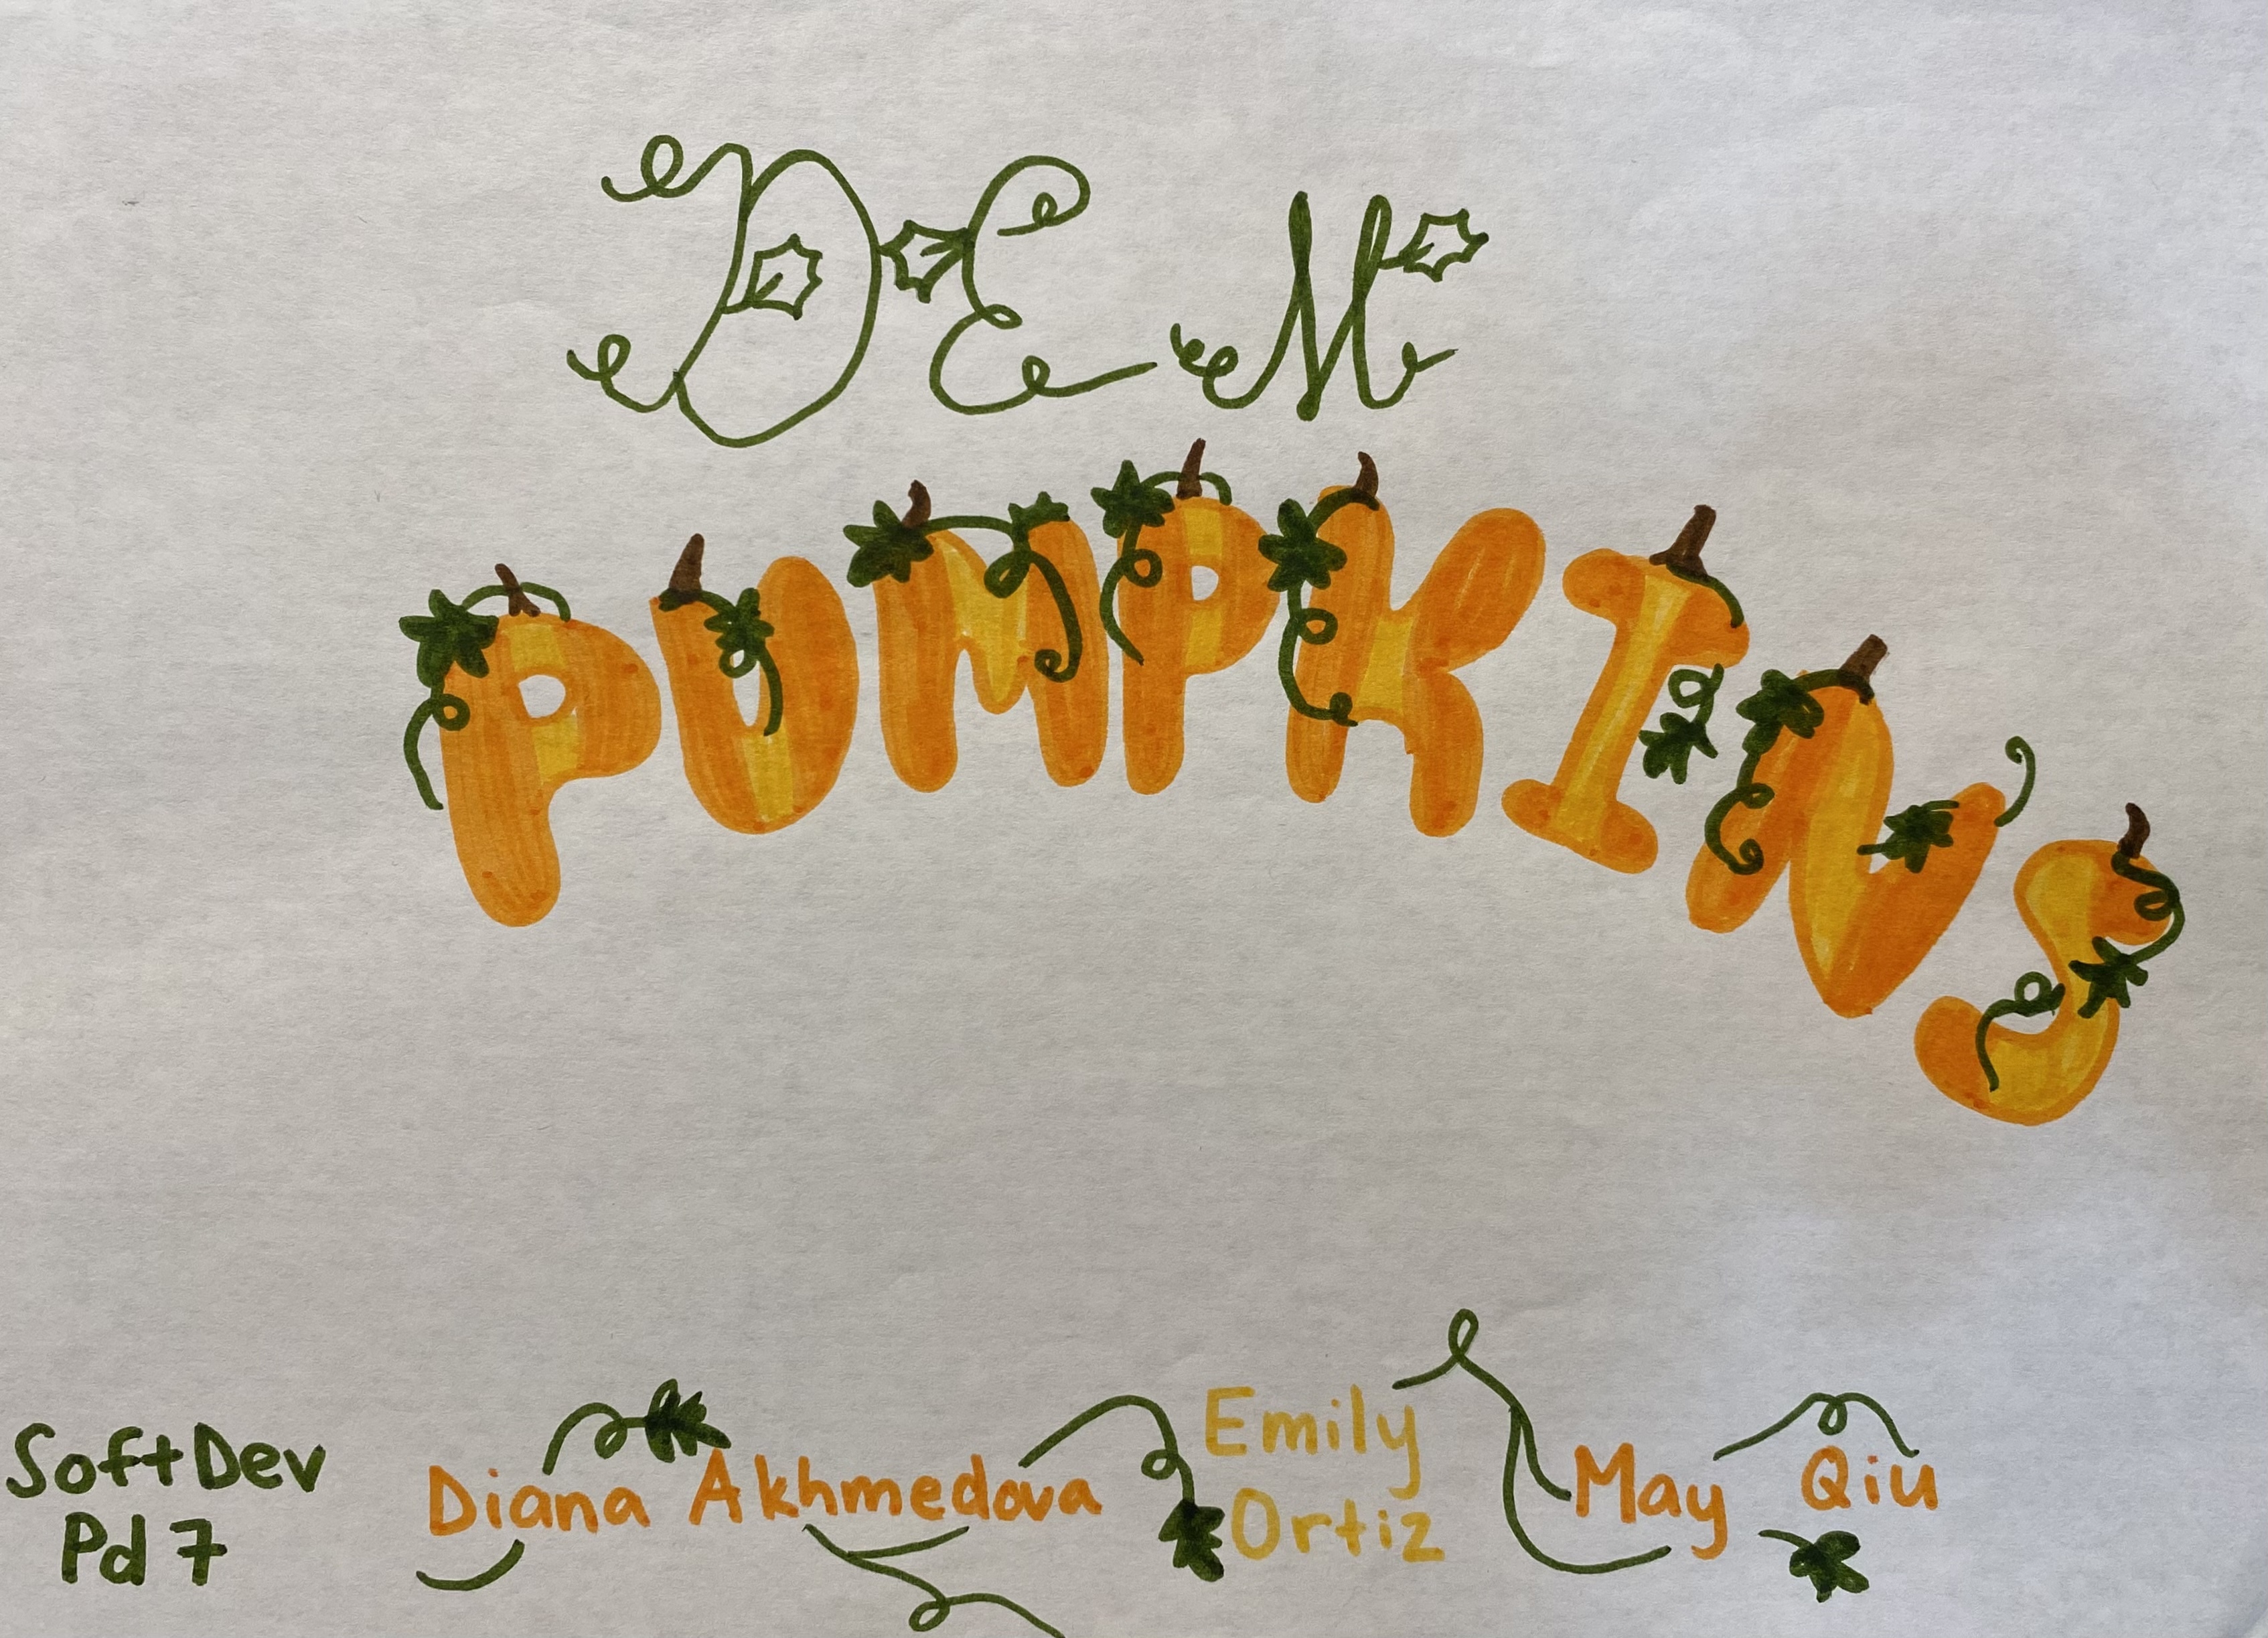 DEM
PUMPKINS
SoftDev
Pd 7
Diana Akhmedova
Emily
Ortiz
May Qiu